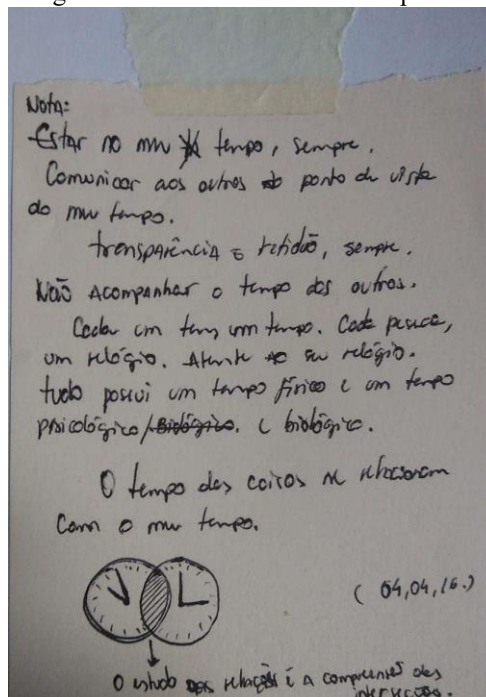 Nota:
Estar no meu tempo, sempre.
Comunicar aos outros do ponto de vista
do meu tempo.
transparência e retidão, sempre.
Não acompanhar o tempo dos outros.
Cada um tem um tempo. Cada pessoa,
um relógio. Atente ao seu relógio.
tudo possui um tempo físico e um tempo
psicológico/biológico. e biológico.
O tempo das coisas se relacionam
com o meu tempo.
(04,04,16.)
O estudo das relações é a compreensão das
intersecções.